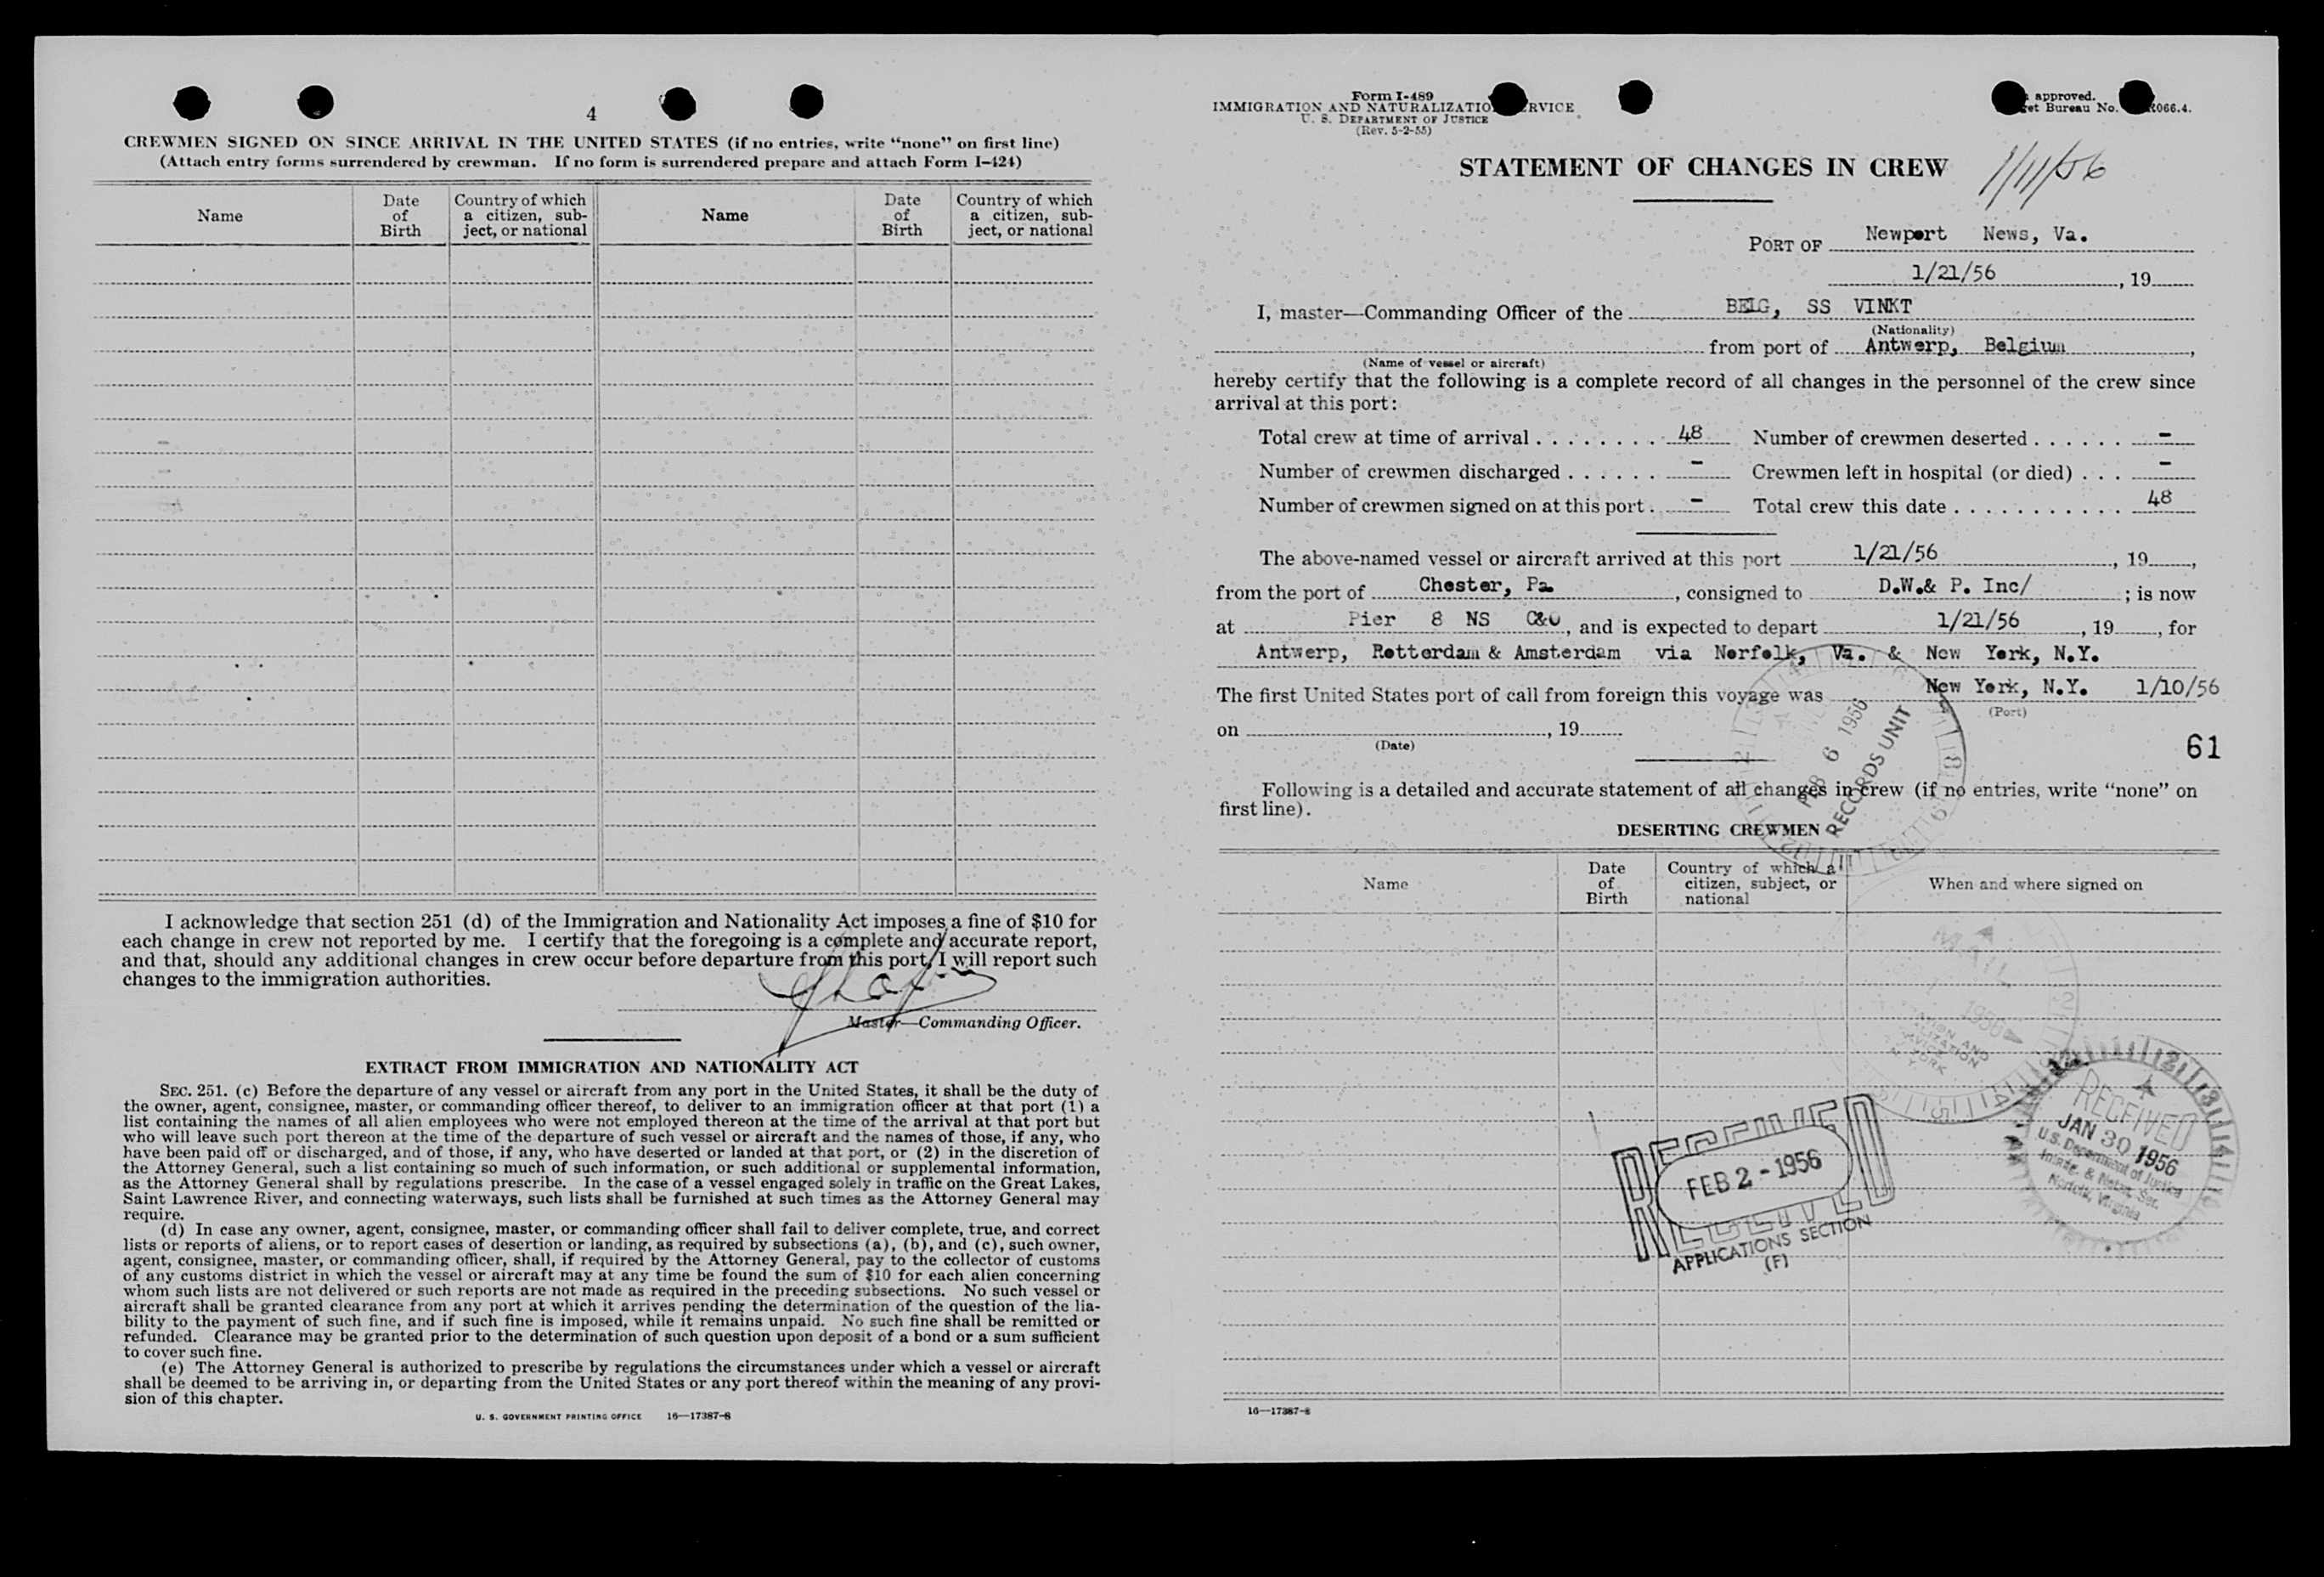 4
CREWMEN SIGNED ON SINCE ARRIVAL IN THE UNITED STATES (if no entries, write “none” on first line)
(Attach entry forms surrendered by crewman. If no form is surrendered prepare and attach Form I-424)
Name
Date of Birth
Country of which a citizen, sub-ject, or national
Name
Date of Birth
Country of which a citizen, sub-ject, or national
I acknowledge that section 251 (d) of the Immigration and Nationality Act imposes a fine of $10 for
each change in crew not reported by me. I certify that the foregoing is a complete and accurate report,
and that, should any additional changes in crew occur before departure from this port, I will report such
changes to the immigration authorities.
Master—Commanding Officer.
EXTRACT FROM IMMIGRATION AND NATIONALITY ACT
SEC. 251. (c) Before the departure of any vessel or aircraft from any port in the United States, it shall be the duty of
the owner, agent, consignee, master, or commanding officer thereof, to deliver to an immigration officer at that port (1) a
list containing the names of all alien employees who were not employed thereon at the time of the arrival at that port but
who will leave such port thereon at the time of the departure of such vessel or aircraft and the names of those, if any, who
have been paid off or discharged, and of those, if any, who have deserted or landed at that port, or (2) in the discretion of
the Attorney General, such a list containing so much of such information, or such additional or supplemental information,
as the Attorney General shall by regulations prescribe. In the case of a vessel engaged solely in traffic on the Great Lakes,
Saint Lawrence River, and connecting waterways, such lists shall be furnished at such times as the Attorney General may
require.
(d) In case any owner, agent, consignee, master, or commanding officer shall fail to deliver complete, true, and correct
lists or reports of aliens, or to report cases of desertion or landing, as required by subsections (a), (b), and (c), such owner,
agent, consignee, master, or commanding officer, shall, if required by the Attorney General, pay to the collector of customs
of any customs district in which the vessel or aircraft may at any time be found the sum of $10 for each alien concerning
whom such lists are not delivered or such reports are not made as required in the preceding subsections. No such vessel or
aircraft shall be granted clearance from any port at which it arrives pending the determination of the question of the lia-
bility to the payment of such fine, and if such fine is imposed, while it remains unpaid. No such fine shall be remitted or
refunded. Clearance may be granted prior to the determination of such question upon deposit of a bond or a sum sufficient
to cover such fine.
(e) The Attorney General is authorized to prescribe by regulations the circumstances under which a vessel or aircraft
shall be deemed to be arriving in, or departing from the United States or any port thereof within the meaning of any provi-
sion of this chapter.
U. S. GOVERNMENT PRINTING OFFICE 16—17387-8
Form I-489
IMMIGRATION AND NATURALIZATIO RVICE
U. S. DEPARTMENT OF JUSTICE
(Rev. 5-2-55)
approved.
et Bureau No. 066.4.
STATEMENT OF CHANGES IN CREW
1/11/56
PORT OF Newport News, Va.
1/21/56, 19
I, master—Commanding Officer of the BELG, SS VINKT
(Nationality)
from port of Antwerp, Belgium,
(Name of vessel or aircraft)
hereby certify that the following is a complete record of all changes in the personnel of the crew since
arrival at this port:
Total crew at time of arrival . . . . . . . . 48 Number of crewmen deserted . . . . . . -
Number of crewmen discharged . . . . . . - Crewmen left in hospital (or died) . . . -
Number of crewmen signed on at this port . - Total crew this date . . . . . . . . . . . 48
The above-named vessel or aircraft arrived at this port 1/21/56, 19,
from the port of Chester, Pa, consigned to D.W.& P. Inc/; is now
at Pier 8 NS C&O, and is expected to depart 1/21/56, 19, for
Antwerp, Rotterdam & Amsterdam via Norfolk, Va. & New York, N.Y.
The first United States port of call from foreign this voyage was New York, N.Y. 1/10/56
(Port)
on , 19
(Date)
61
FEB 6 1956
RECORDS UNIT
Following is a detailed and accurate statement of all changes in crew (if no entries, write “none” on
first line).
DESERTING CREWMEN
Name
Date of Birth
Country of which a citizen, subject, or national
When and where signed on
MAIL
1956
RECEIVED
JAN 30 1956
U.S. Department of Justice
Immig. & Natz. Ser.
Norfolk, Virginia
RECEIVED
FEB 2 - 1956
APPLICATIONS SECTION
(F)
16—17387-8